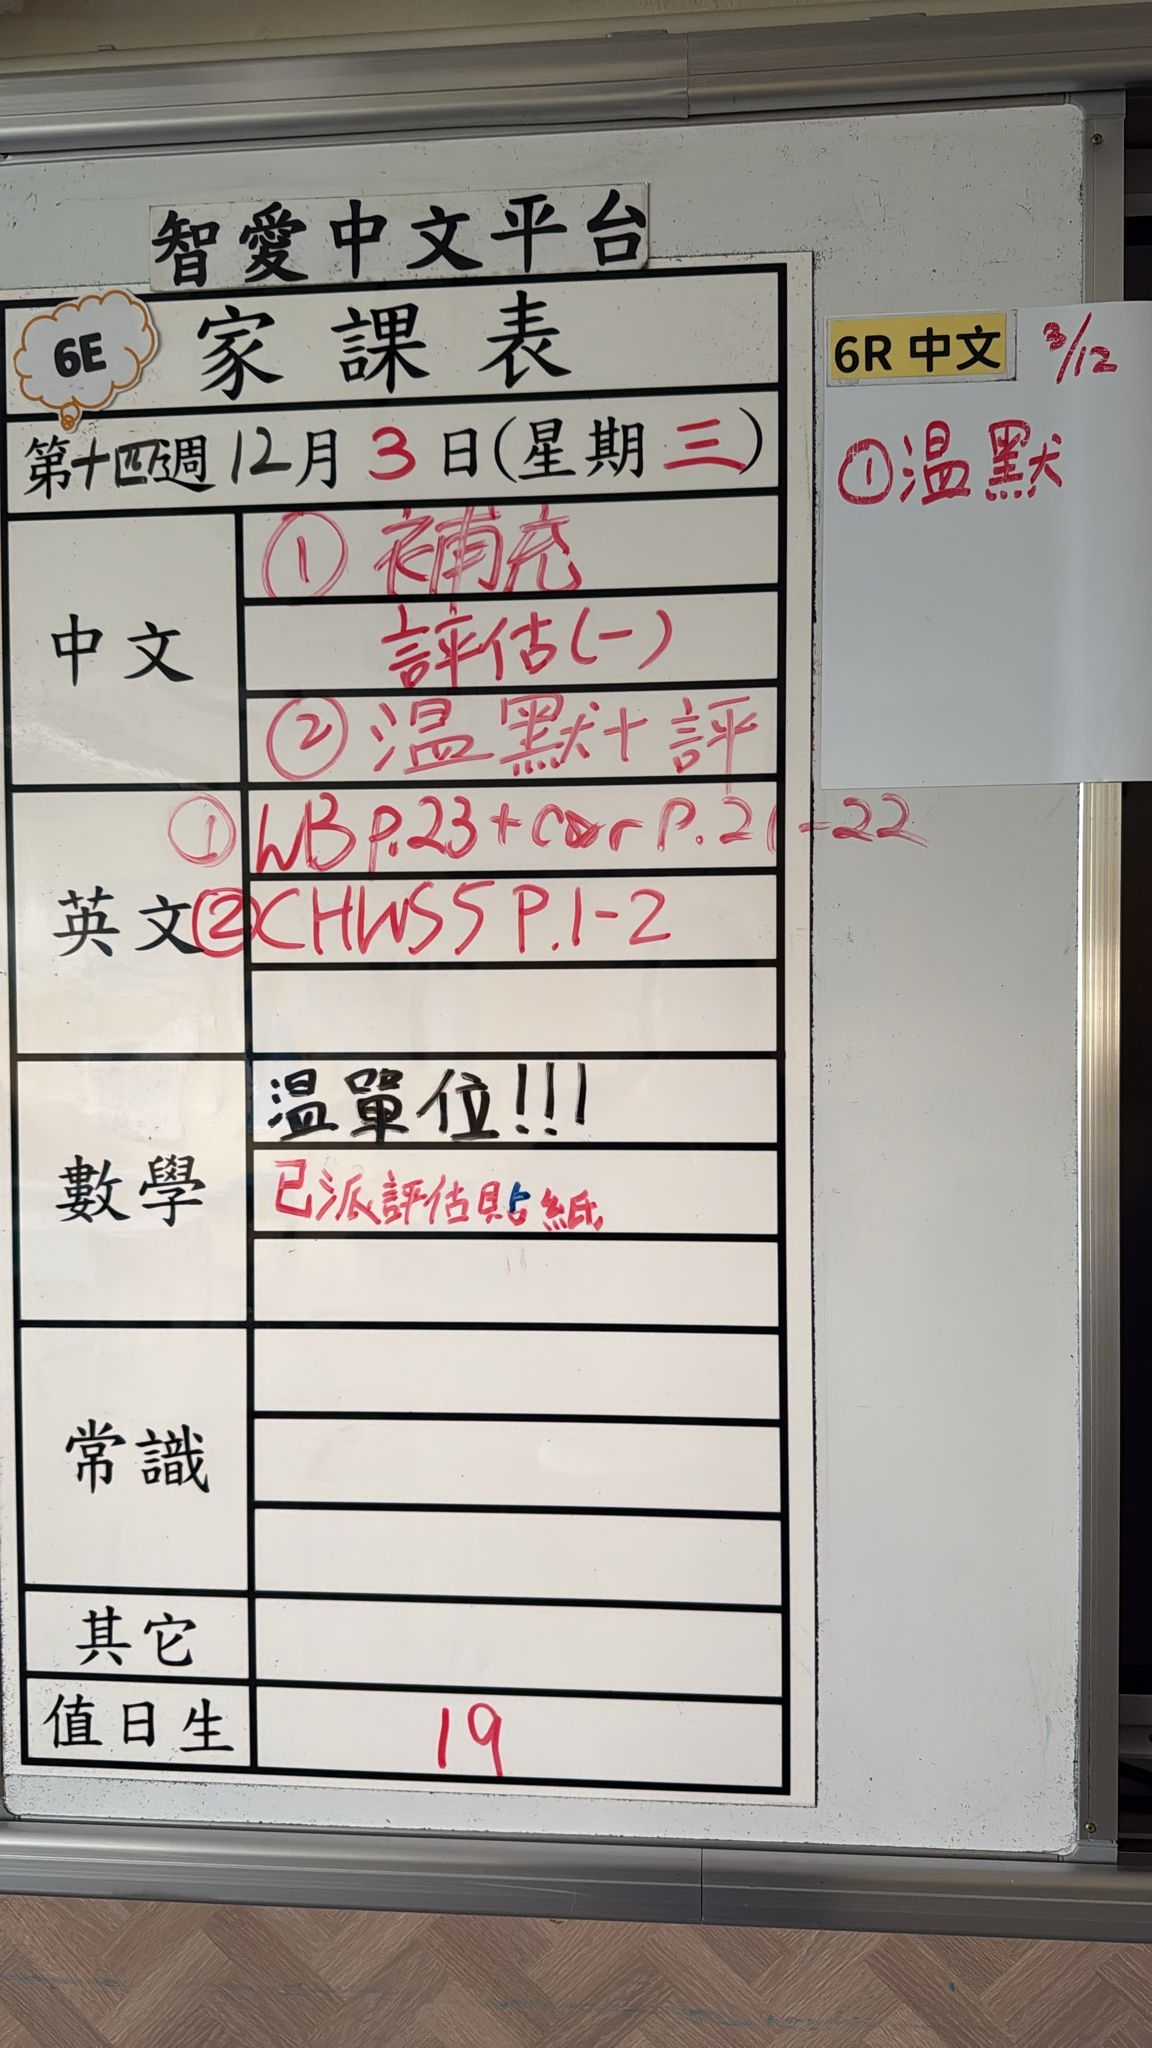 智愛中文平台
6E
家課表
第十四週12月3日(星期三)
中文
①補充
評估(一)
②温默+評
英文
①WB P.23+cor P.21-22
②CHWS5 P.1-2
數學
温單位!!!
已派評估貼紙
常識
其它
值日生
19
6R 中文
3/12
①温默